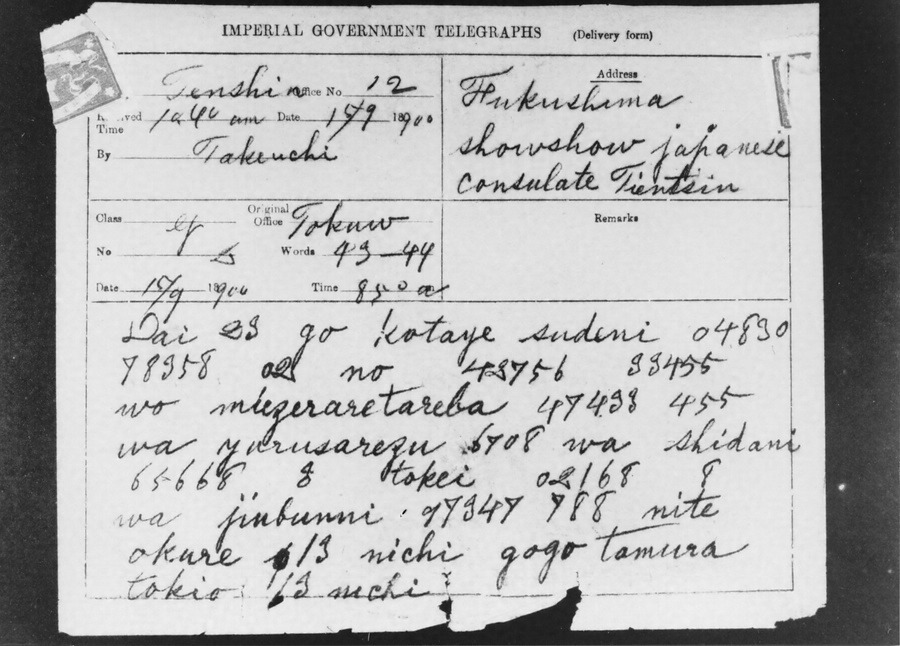 IMPERIAL GOVERNMENT TELEGRAPHS (Delivery form)
Tenshin Office No 12
Time 10 40 am Date 15/9 1900
By Takeuchi
Address
Fukushima
showshow japanese
consulate Tientsin
Class Original Office Tokuw
No 5 Words 43-44
Date 15/9 1900 Time 8 50 a
Remarks
Dai 23 go kotaye sudeni 04830
78358 02 no 43756 33455
wo miezeraretareba 47433 455
wa yurusarezu 6708 wa shidani
65668 8 tokei 02168 8
wa jiubunni 97347 788 nite
okure 13 nichi gogo tamura
tokio 13 nichi